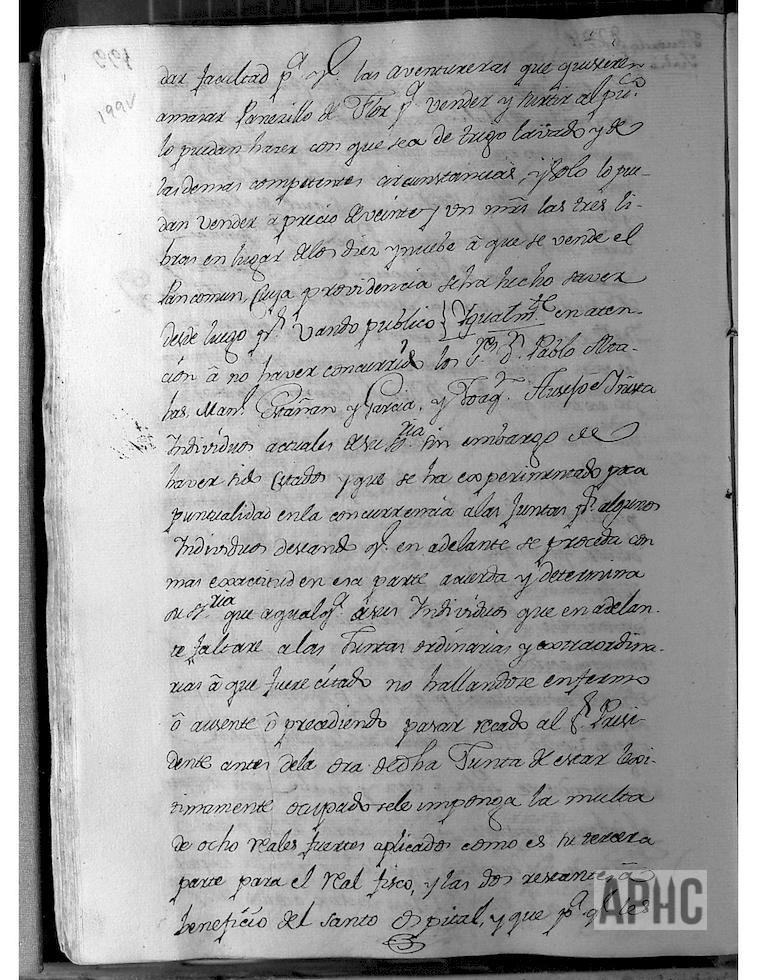 199v
dar facultad pª qᵉ. las aventureras que quisieren
amasar Panezillo de Flor pª vender y surtir al puᶜᵒ
lo puedan hacer con que sea de trigo lavado y de
las demas competentes circunstancias, y solo lo pue-
dan vender a precio de veinte y un mr̃s las tres li-
bras en lugar de los diez y nuebe â que se vende el
Pan comun, Cuya providencia se ha hecho saver
desde luego pʳ. Vando publico Igualmᵗᵉ en aten-
ción â no haver concurrido los Sʳᵉˢ Dⁿ. Pablo
Manˡ y Garcia, y Joaqⁿ.
Individuos actuales de su Sʳⁱᵃ. sin embargo de
haver sido Citados y que se ha experimentado poca
puntualidad en la concurrencia a las Juntas pʳ. algunos
Individuos deseando qᵉ. en adelante se proceda con
mas exactitud en esa parte acuerda y determina
su Sʳⁱᵃ que a qualqᵃ. de sus Individuos que en adelan-
te faltare a las Juntas ordinarias y extraordina-
rias â que fuere citado no hallandose enfermo
ô ausente ô precediendo pasar recado al Sʳ. Presi-
dente antes de la ora de dha Junta de estar lexi-
timamente ocupado se le imponga la multa
de ocho reales fuertes aplicados como es su tercera
parte para el real fisco, y las dos restantes â
beneficio del santo Ospital, y que pª qᵉ les
APHC